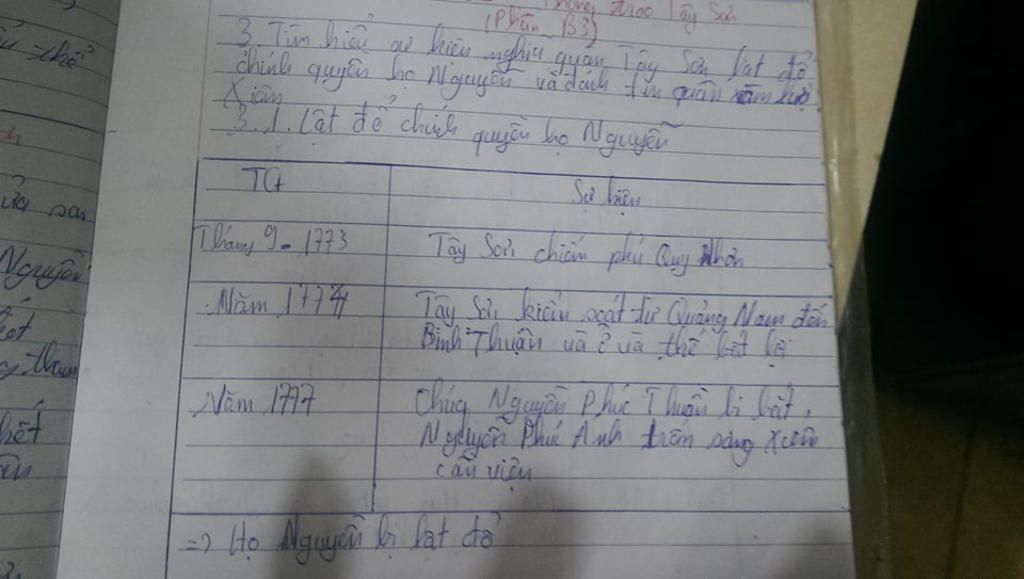 trào Tây Sơn
(Phần B3)
3 Tìm hiểu sự kiện nghĩa quân Tây Sơn lật đổ
chính quyền họ Nguyễn và đánh tan quân xâm lược
Xiêm
3.1. Lật đổ chính quyền họ Nguyễn
TG
Sự kiện
Tháng 9-1773
Tây Sơn chiếm phủ Quy Nhơn
Năm 1774
Tây Sơn kiểm soát từ Quảng Nam đến
Bình Thuận và ở và thế bất lợi
Năm 1777
Chúa Nguyễn Phúc Thuần bị bắt,
Nguyễn Phúc Ánh trốn sang Xiêm
cầu viện
=> Họ Nguyễn bị lật đổ
thể
của
Nguyễn
hết